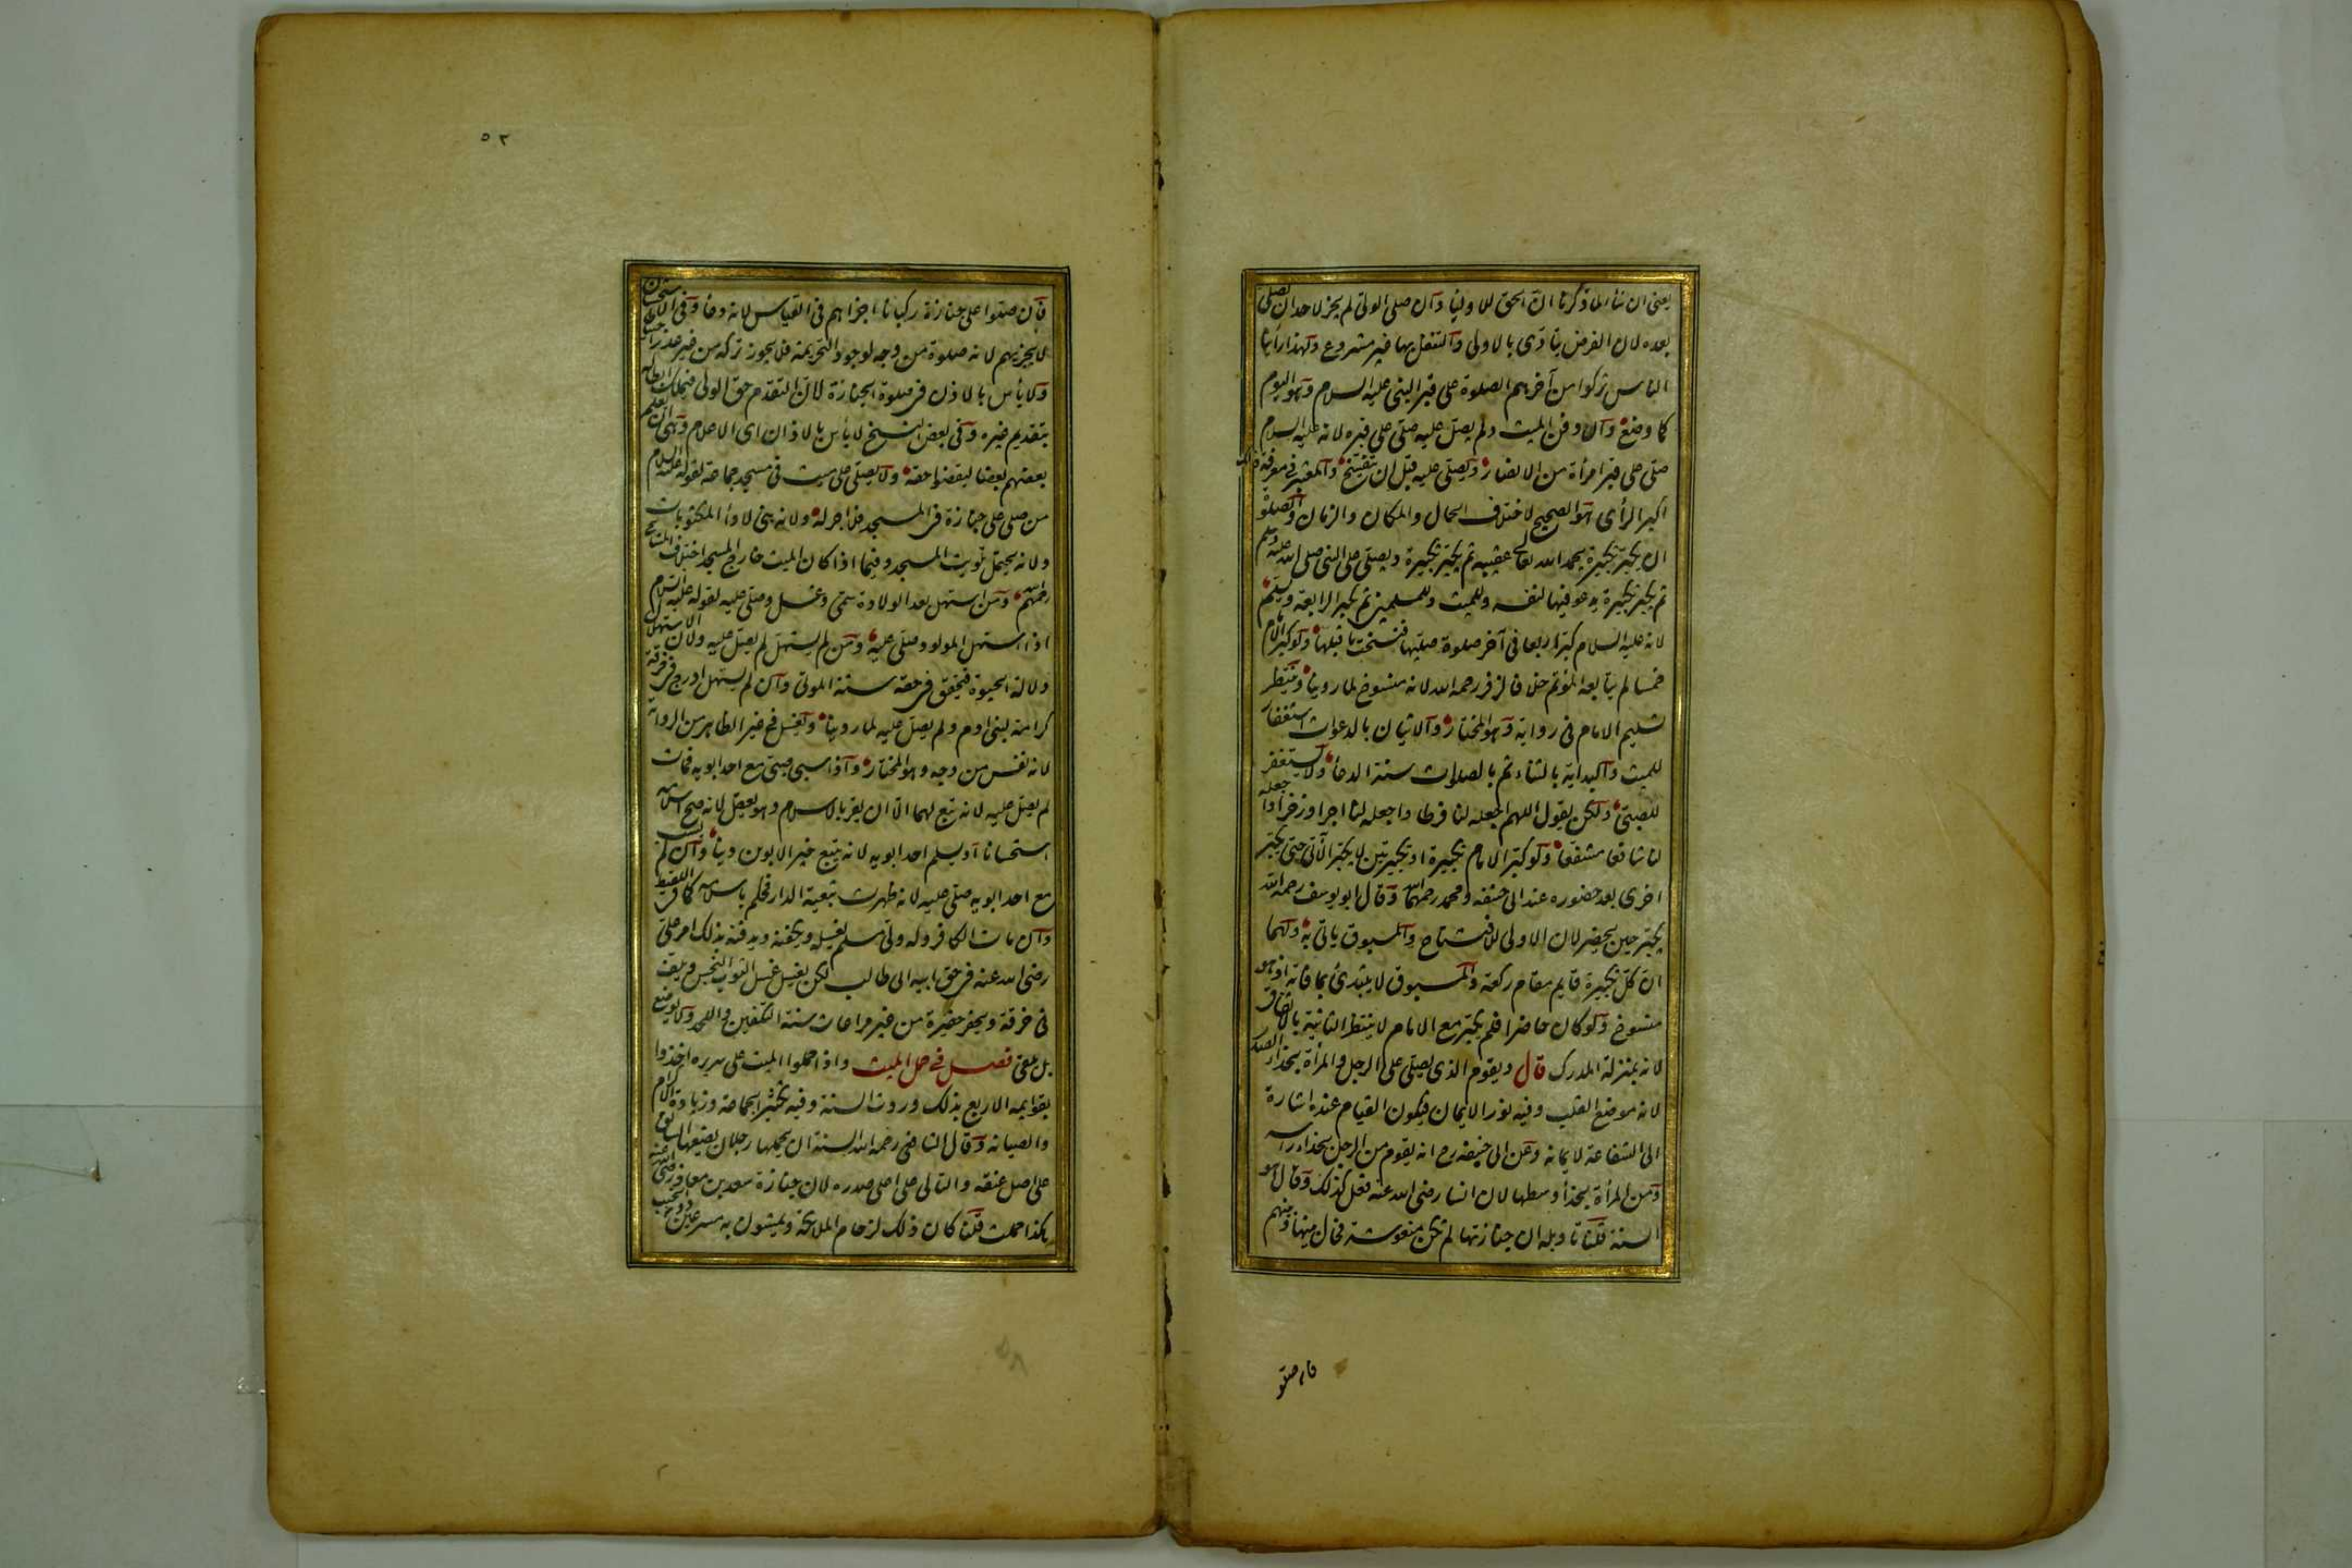 يعنى ان شاء لما ذكرنا انّ الحق للاوليا وآن صلى الولى لم يجز لاحد ان يصلى
بعده لان الفرض يتادى بالاولى وآلتنفل بها غير مشروع ولهذا رأينا
الناس تركوا من آخرهم الصلوة على قبر النبى عليه السلام وهو اليوم
كما وضع وآن دفن الميت ولم يصلّ عليه صلّى على قبره لانه عليه السلام
صلّى على قبر امرأة من الانصار ويصلّى عليه قبل ان يتفسّخ والمعتبر فى معرفة ذلك
اكبر الرأى هو الصحيح لاختلاف الحال والمكان والزمان والصلوة
ان يكبّر تكبيرة يحمد الله تعالى عقيبه ثم يكبّر تكبيرة ويصلّى على النبى صلى الله عليه وسلم
ثم يكبّر تكبيرة يدعو فيها لنفسه وللميت وللمسلمين ثم يكبر الرابعة ويسلّم
لانه عليه السلام كبّر اربعا فى آخر صلوة صليها فنسخت ما قبلها ولو كبر الامام
خمسا لم يتابعه المؤتم خلافا لزفر رحمه الله لانه منسوخ لما روينا وينتظر
تسليم الامام فى رواية وهو المختار وآلاتيان بالدعوات استغفار
للميت وآلبداية بالثناء ثم بالصلوات سنة الدعا ولا يستغفر
للصبىّ ولكن يقول اللهم اجعله لنا فرطا واجعله لنا اجرا وذخرا واجعله
لنا شافعا مشفّعا ولو كبّر الامام تكبيرة او تكبيرتين لا يكبّر الآتى حتى يكبّر
اخرى بعد حضوره عند ابى حنيفه ومحمد رحمهما الله وقال ابو يوسف رحمه الله
يكبّر حين يحضر لان الاولى للافتتاح والمسبوق ياتى به ولهما
انّ كلّ تكبيرة قايم مقام ركعة والمسبوق لا يبتدئ بما فاته اذ هو
منسوخ ولو كان حاضرا فلم يكبّر مع الامام لا ينتظر الثانية بالاتفاق
لانه بمنزلة المدرك قال ويقوم الذى يصلّى على الرجل والمرأة بحذاء الصدر
لانه موضع القلب وفيه نور الايمان فيكون القيام عنده اشارة
الى الشفاعة لايمانه وعن ابى حنيفه رح انه يقوم من الرجل بحذاء راسه
ومن المرأة بحذا وسطها لان انسا رضى الله عنه فعل كذلك وقال هو
السنة قلنا تاويله ان جنازتها لم تكن منعوشة فحال بينها وبينهم
فان صلّو
٥٢
فآن صلّوا على جنازة ركبانا اجزاهم فى القياس لانه دعا وفى الاستحسان
لا يجزيهم لانه صلوة من وجه لوجود التحريمة فلا يجوز تركه من غير عذر احتياطا
ولا بأس بالاذن فى صلوة الجنازة لانّ التقدم حق الولى فيملك ابطاله
بتقديم غيره وفى بعض النسخ لا بأس بالاذان اى الاعلام وهو ان يعلم
بعضهم بعضا ليقضوا حقه ولا يصلّى على ميت فى مسجد جماعة لقوله عليه السلام
من صلى على جنازة فى المسجد فلا اجر له ولانه بنى لادا المكتوبات
ولانه يحتمل تلويث المسجد وفيما اذا كان الميت خارج المسجد اختلف المشايخ
رحمهم ومن استهل بعد الولادة سمّى وغسل وصلّى عليه لقوله عليه السلام
اذا استهل المولود صلّى عليه ومن لم يستهلّ لم يصلّ عليه ولان الاستهلال
دلالة الحيوة فتحقق فى حقه سنة الموتى وآن لم يستهل ادرج فى خرقة
كرامة لبنى ادم ولم يصلّ عليه لما روينا ويغسل فى غير الظاهر من الرواية
لانه نفس من وجه وهو المختار وآذا سبى صبىّ مع احد ابويه فمات
لم يصلّ عليه لانه تبع لهما الّا ان يقر بالاسلام وهو يعقل لانه صح اسلامه
استحسانا او يسلم احد ابويه لانه يتبع خير الابوين دينا وآن لم يسب
مع احد ابويه صلّى عليه لانه ظهرت تبعية الدار فحكم باسلامه كما فى اللقيط
وآن مات الكافر وله ولىّ مسلم يغسله ويكفنه ويدفنه بذلك امر علىّ
رضى الله عنه فى حق ابيه ابى طالب لكن يغسل غسل الثوب النجس ويلف
فى خرقة ويحفر حفيرة من غير مراعات سنة التكفين واللحد ولا يوضع
بل يلقى فصل فى حمل الميت واذا حملوا الميت على سريره اخذوا
بقوايمه الاربع بذلك وردت السنة وفيه تكثير الجماعة وزيادة الاكرام
والصيانة وقال الشافعى رحمه الله السنة ان يحملها رجلان يضعها السابق
على اصل عنقه والتالى على اعلى صدره لان جنازة سعد بن معاذ رضى الله عنه
هكذا حملت قلنا كان ذلك لازدحام الملايكة ويمشون به مسرعين دون الخبب